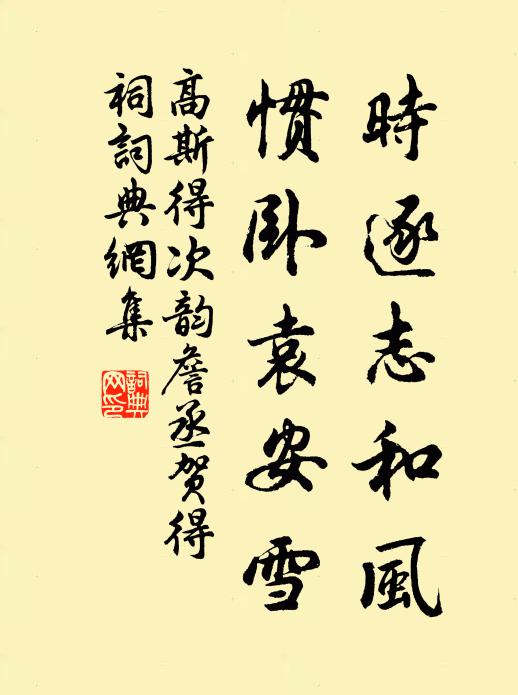 時逐志和風
慣臥袁安雪
高斯得次韵詹丞贺得
祠詞典網集
詞典网印